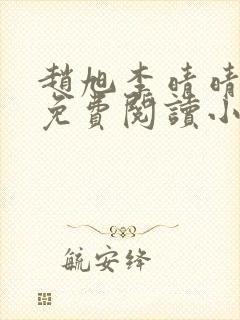 趙旭李晴晴
免費閱讀小
毓安绛